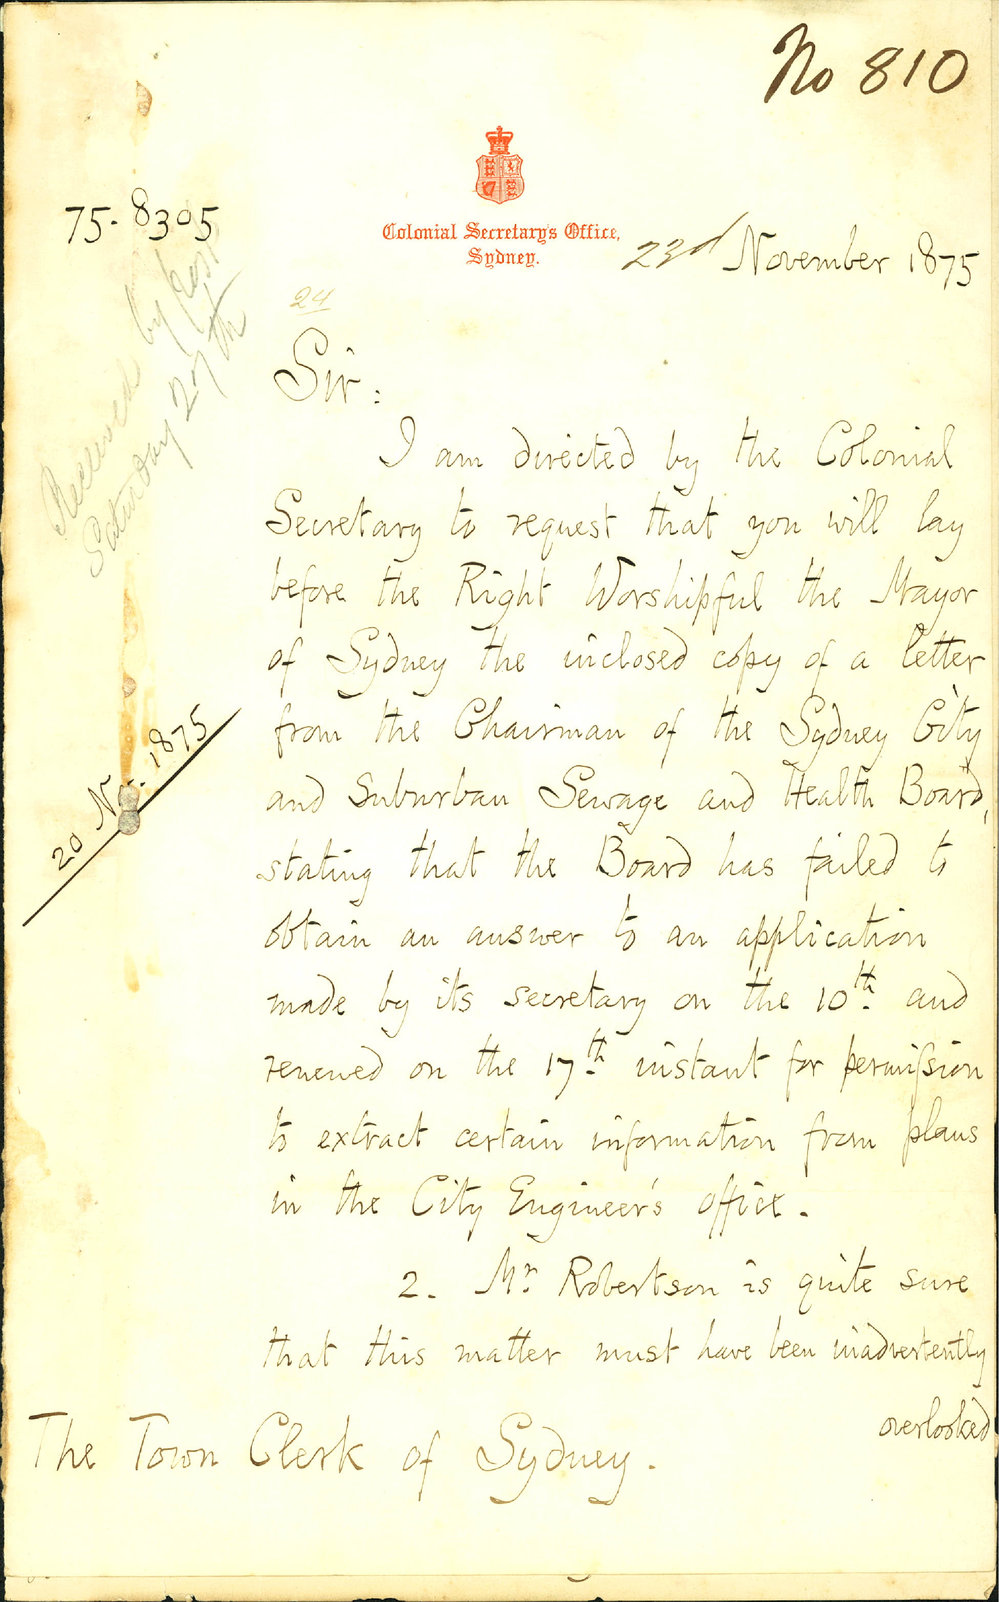 No 810
75-8305
Colonial Secretary's Office,
Sydney.
23rd November 1875
24
Received by post
Saturday 27th
Sir:
I am directed by the Colonial
Secretary to request that you will lay
before the Right Worshipful the Mayor
of Sydney the inclosed copy of a letter
from the Chairman of the Sydney City
and Suburban Sewage and Health Board,
stating that the Board has failed to
obtain an answer to an application
made by its secretary on the 10th. and
renewed on the 17th. instant for permission
to extract certain information from plans
in the City Engineer's office.
20 Nov. 1875
2. Mr. Robertson is quite sure
that this matter must have been inadvertently
overlooked
The Town Clerk of Sydney.